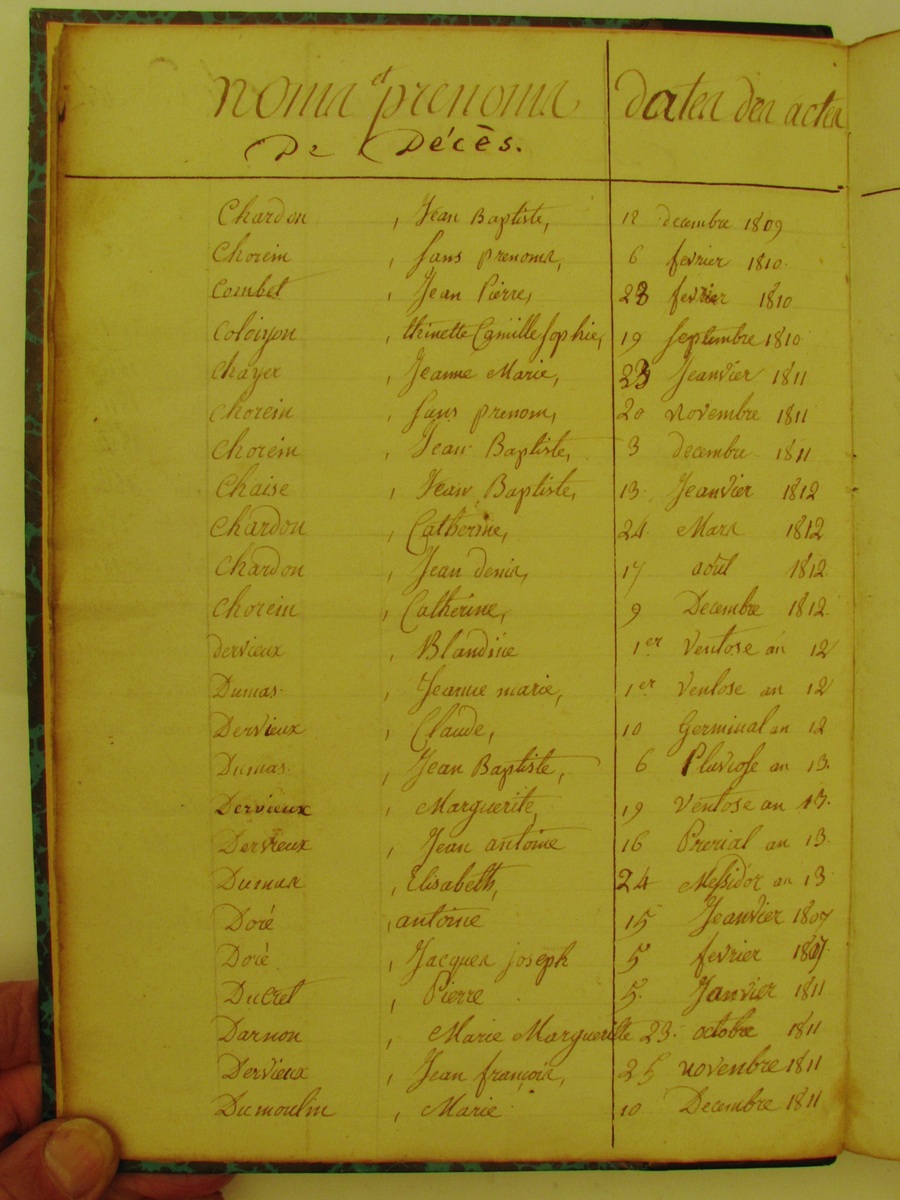 noms et prenoms dates des actes
De Décès.
Chardon , Jean Baptiste, 12 decembre 1809
Chorein , sans prenoms, 6 fevrier 1810.
Combet , Jean Pierre, 28 fevrier 1810
, thinette Camille sophie, 19 septembre 1810
Chayex , Jeanne Marie, 23 Jeanvier 1811
Chorein , sans prenom, 20 novembre 1811
Chorein , Jean Baptiste, 3 decembre 1811
Chaise , Jean Baptiste, 13. Jeanvier 1812
Chardon , Catherine, 24 Mars 1812
Chardon , Jean denis, 17 août 1812
Chorein , Catherine, 9 Decembre 1812
dervieux , Blandine 1er Ventose an 12
Dumas , Jeanne marie, 1er Ventose an 12
Dervieux , Claude, 10 Germinal an 12
Dumas , Jean Baptiste, 6 Pluviose an 13.
Dervieux , Marguerite, 19 Ventose an 13.
Dervieux , Jean antoine 16 Prerial an 13.
Dumas , Elisabeth, 24 Messidor an 13
Doré , antoine 15 Jeanvier 1807
Doré , Jacques joseph 5 fevrier 1807
Ducret , Pierre 5. Janvier 1811
Darnon , Marie Marguerite 23. octobre 1811
Dervieux , Jean françois, 25 novembre 1811
Dumoulin , Marie 10 Decembre 1811